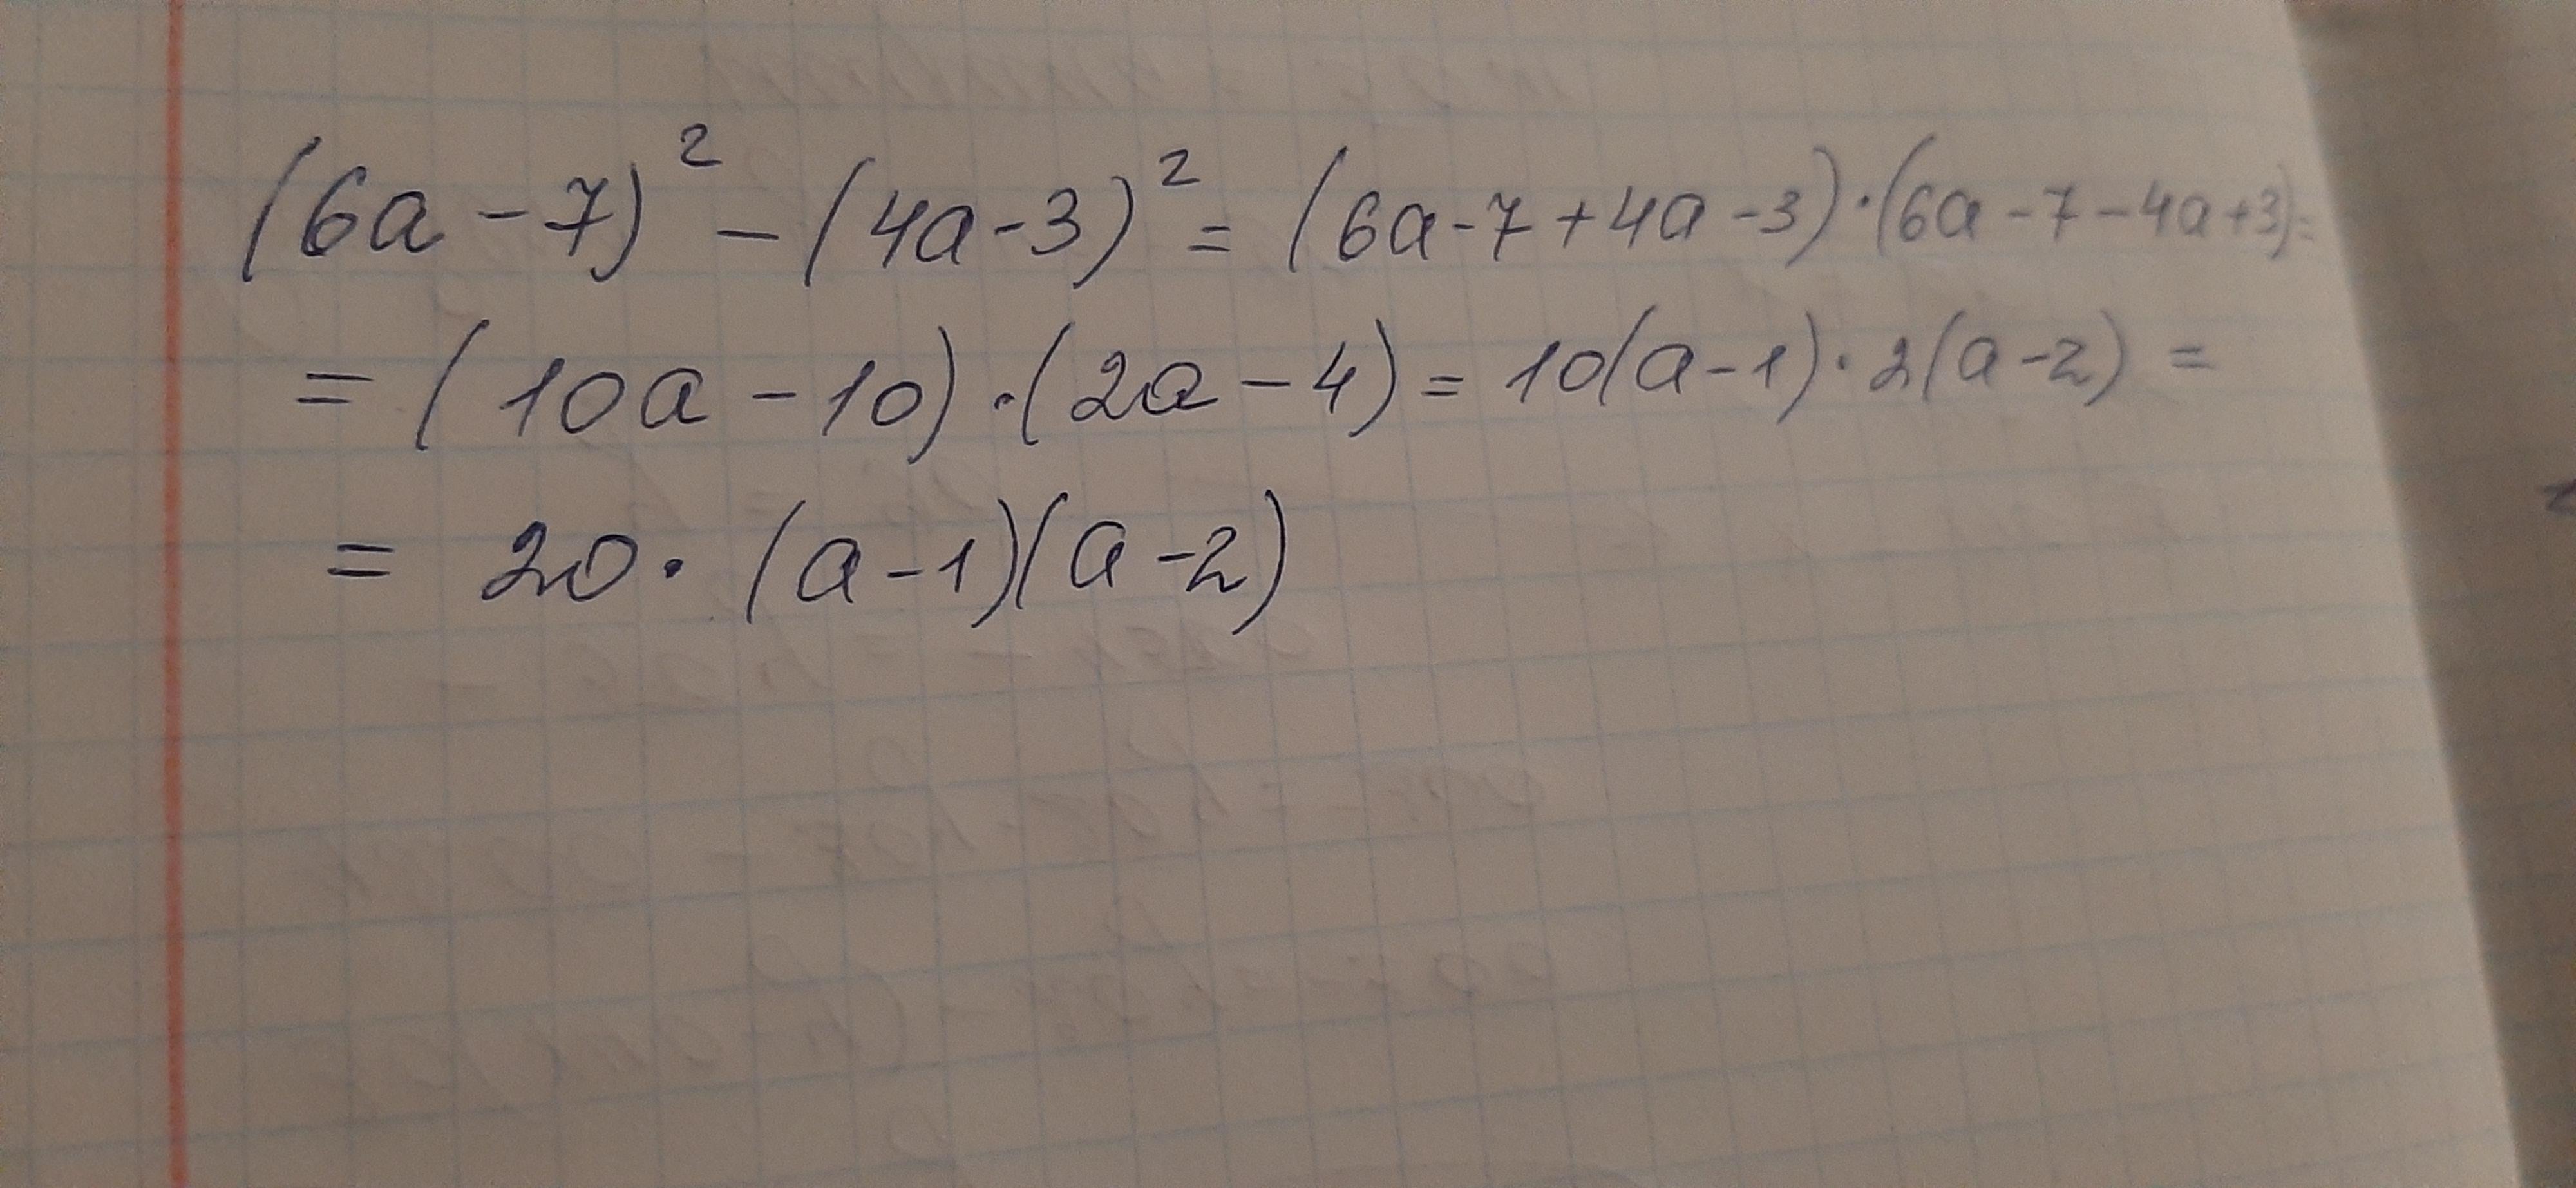 (6a-7)² - (4a-3)² = (6a-7+4a-3)·(6a-7-4a+3)=
= (10a-10)·(2a-4) = 10(a-1)·2(a-2) =
= 20·(a-1)(a-2)